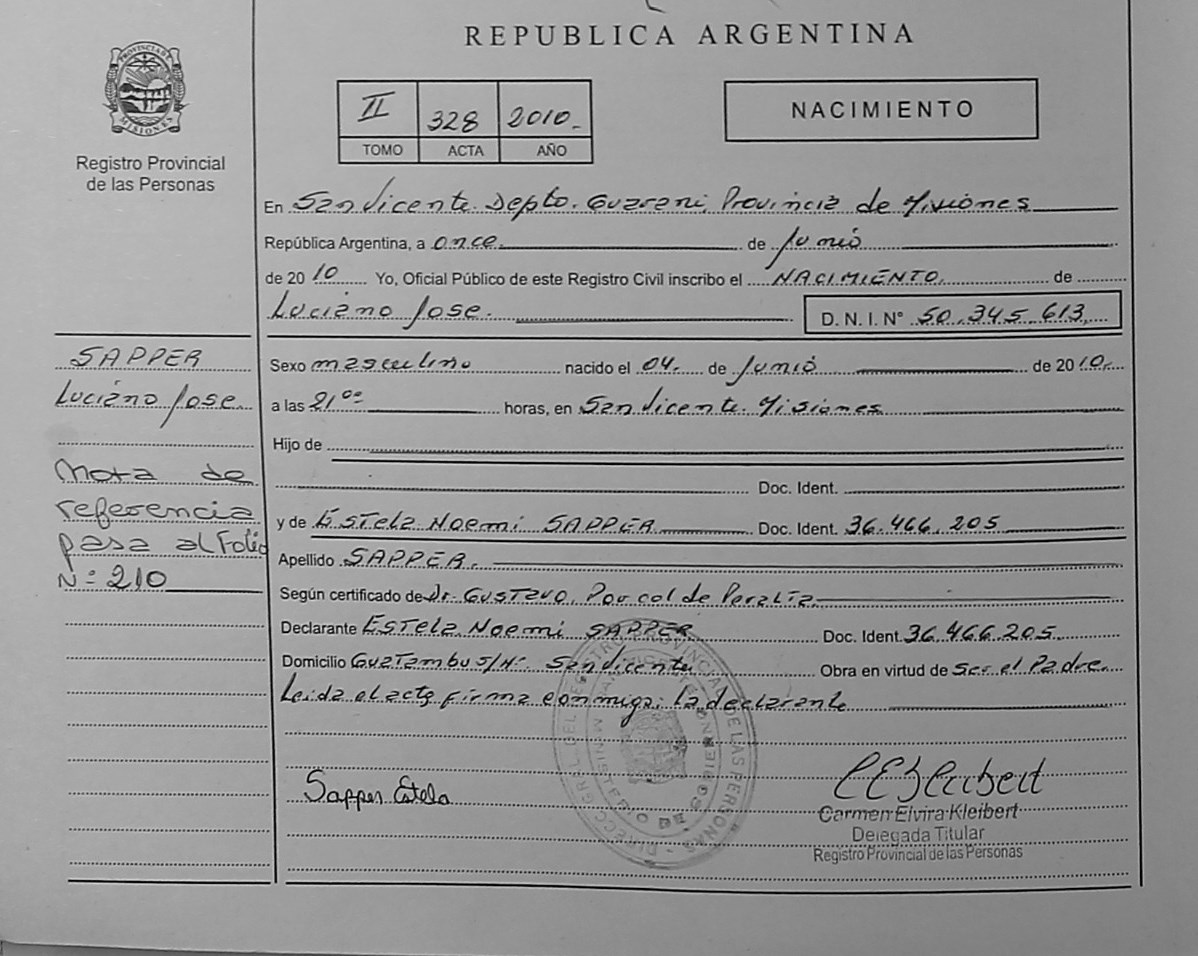 REPUBLICA ARGENTINA
PROVINCIA DE
MISIONES
Registro Provincial
de las Personas
II 328 2010.-
TOMO ACTA AÑO
NACIMIENTO
En San Vicente. Depto. Guarani, Provincia de Misiones
República Argentina, a once. de Junio
de 2010 Yo, Oficial Público de este Registro Civil inscribo el NACIMIENTO. de
Luciano Jose. D. N. I. N° 50.345.613
SAPPER
Luciano Jose.
Nota de
referencia
pasa al Folio
Nº 210
Sexo masculino nacido el 04. de Junio de 2010.
a las 21⁰⁰ horas, en San Vicente. Misiones
Hijo de
Doc. Ident.
y de Estela Noemi SAPPER Doc. Ident. 36.466.205
Apellido SAPPER.
Según certificado de Dr. Gustavo, Porcol de Peralta
Declarante Estela Noemi SAPPER Doc. Ident. 36.466.205
Domicilio Guatambu S/Nº San Vicente Obra en virtud de Ser el Padre
Leida el acta firma conmigo: la declarante
Sapper Estela
Carmen Elvira Kleibert
Delegada Titular
Registro Provincial de las Personas
DIRECC. GRAL. DEL REGISTRO PROVINCIAL DE LAS PERSONAS
MINISTERIO DE
MISIONES